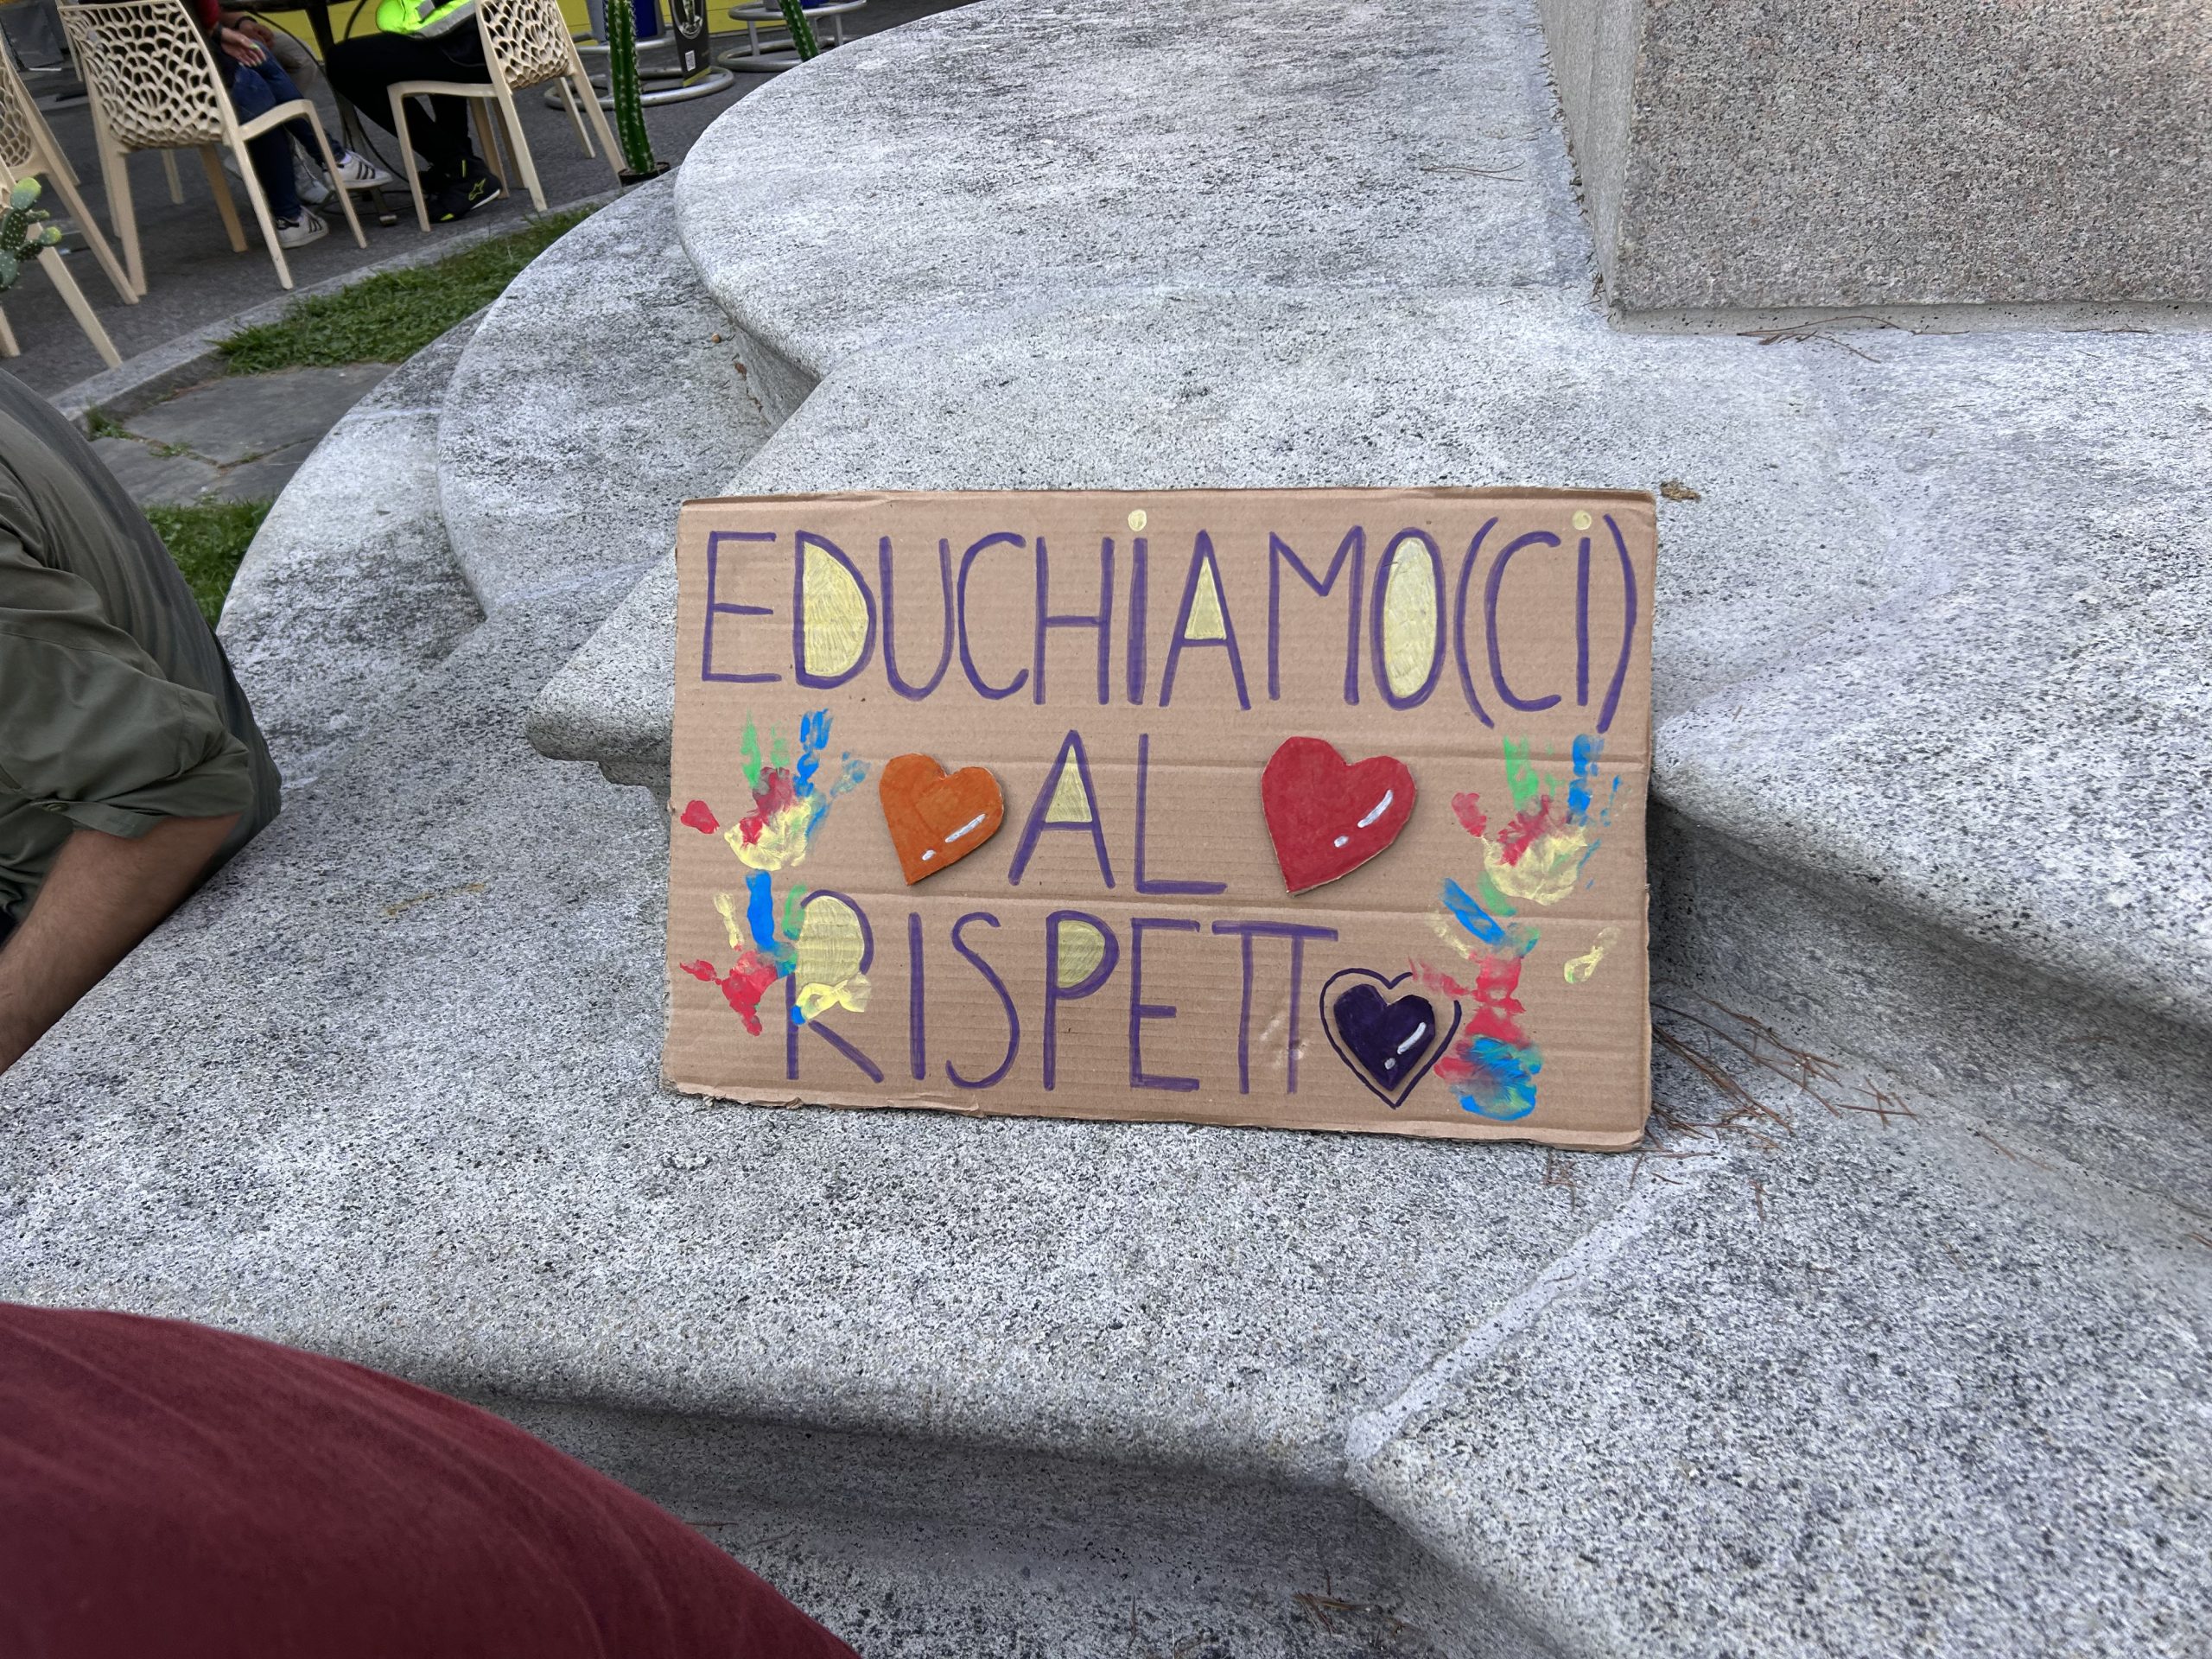 EDUCHiAMO(Ci)
AL
RISPETT